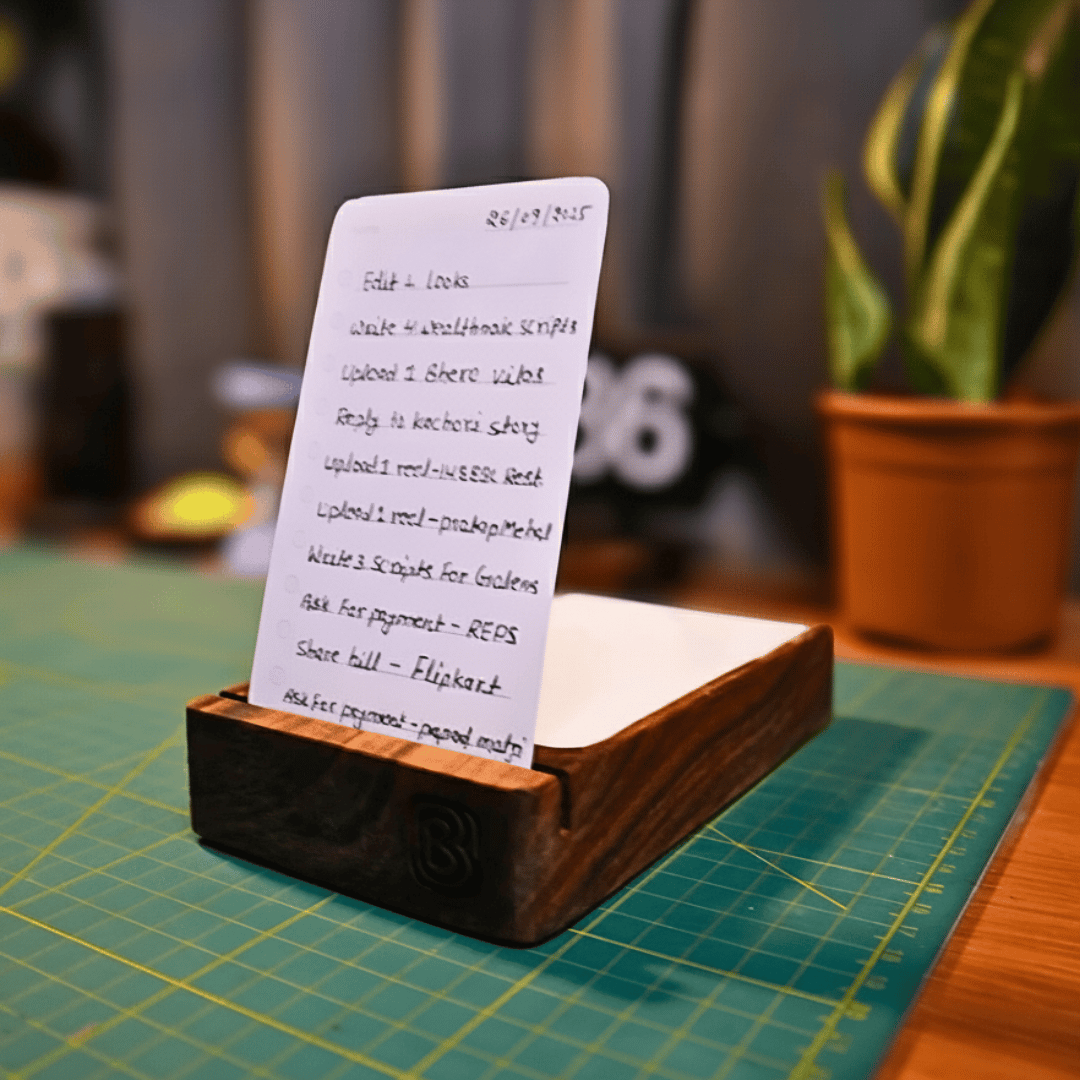 26/09/2025
Edit 4 looks
Write 4 wealthmaic scripts
Upload 1 Bhero vilas
Reply to kachori story
Upload 1 reel - Rest
Upload 1 reel - pratap Mehal
Write 3 Scripts For Gralens
Ask For payment - REPS
Share bill - Flipkart
Ask For payment -
86
B